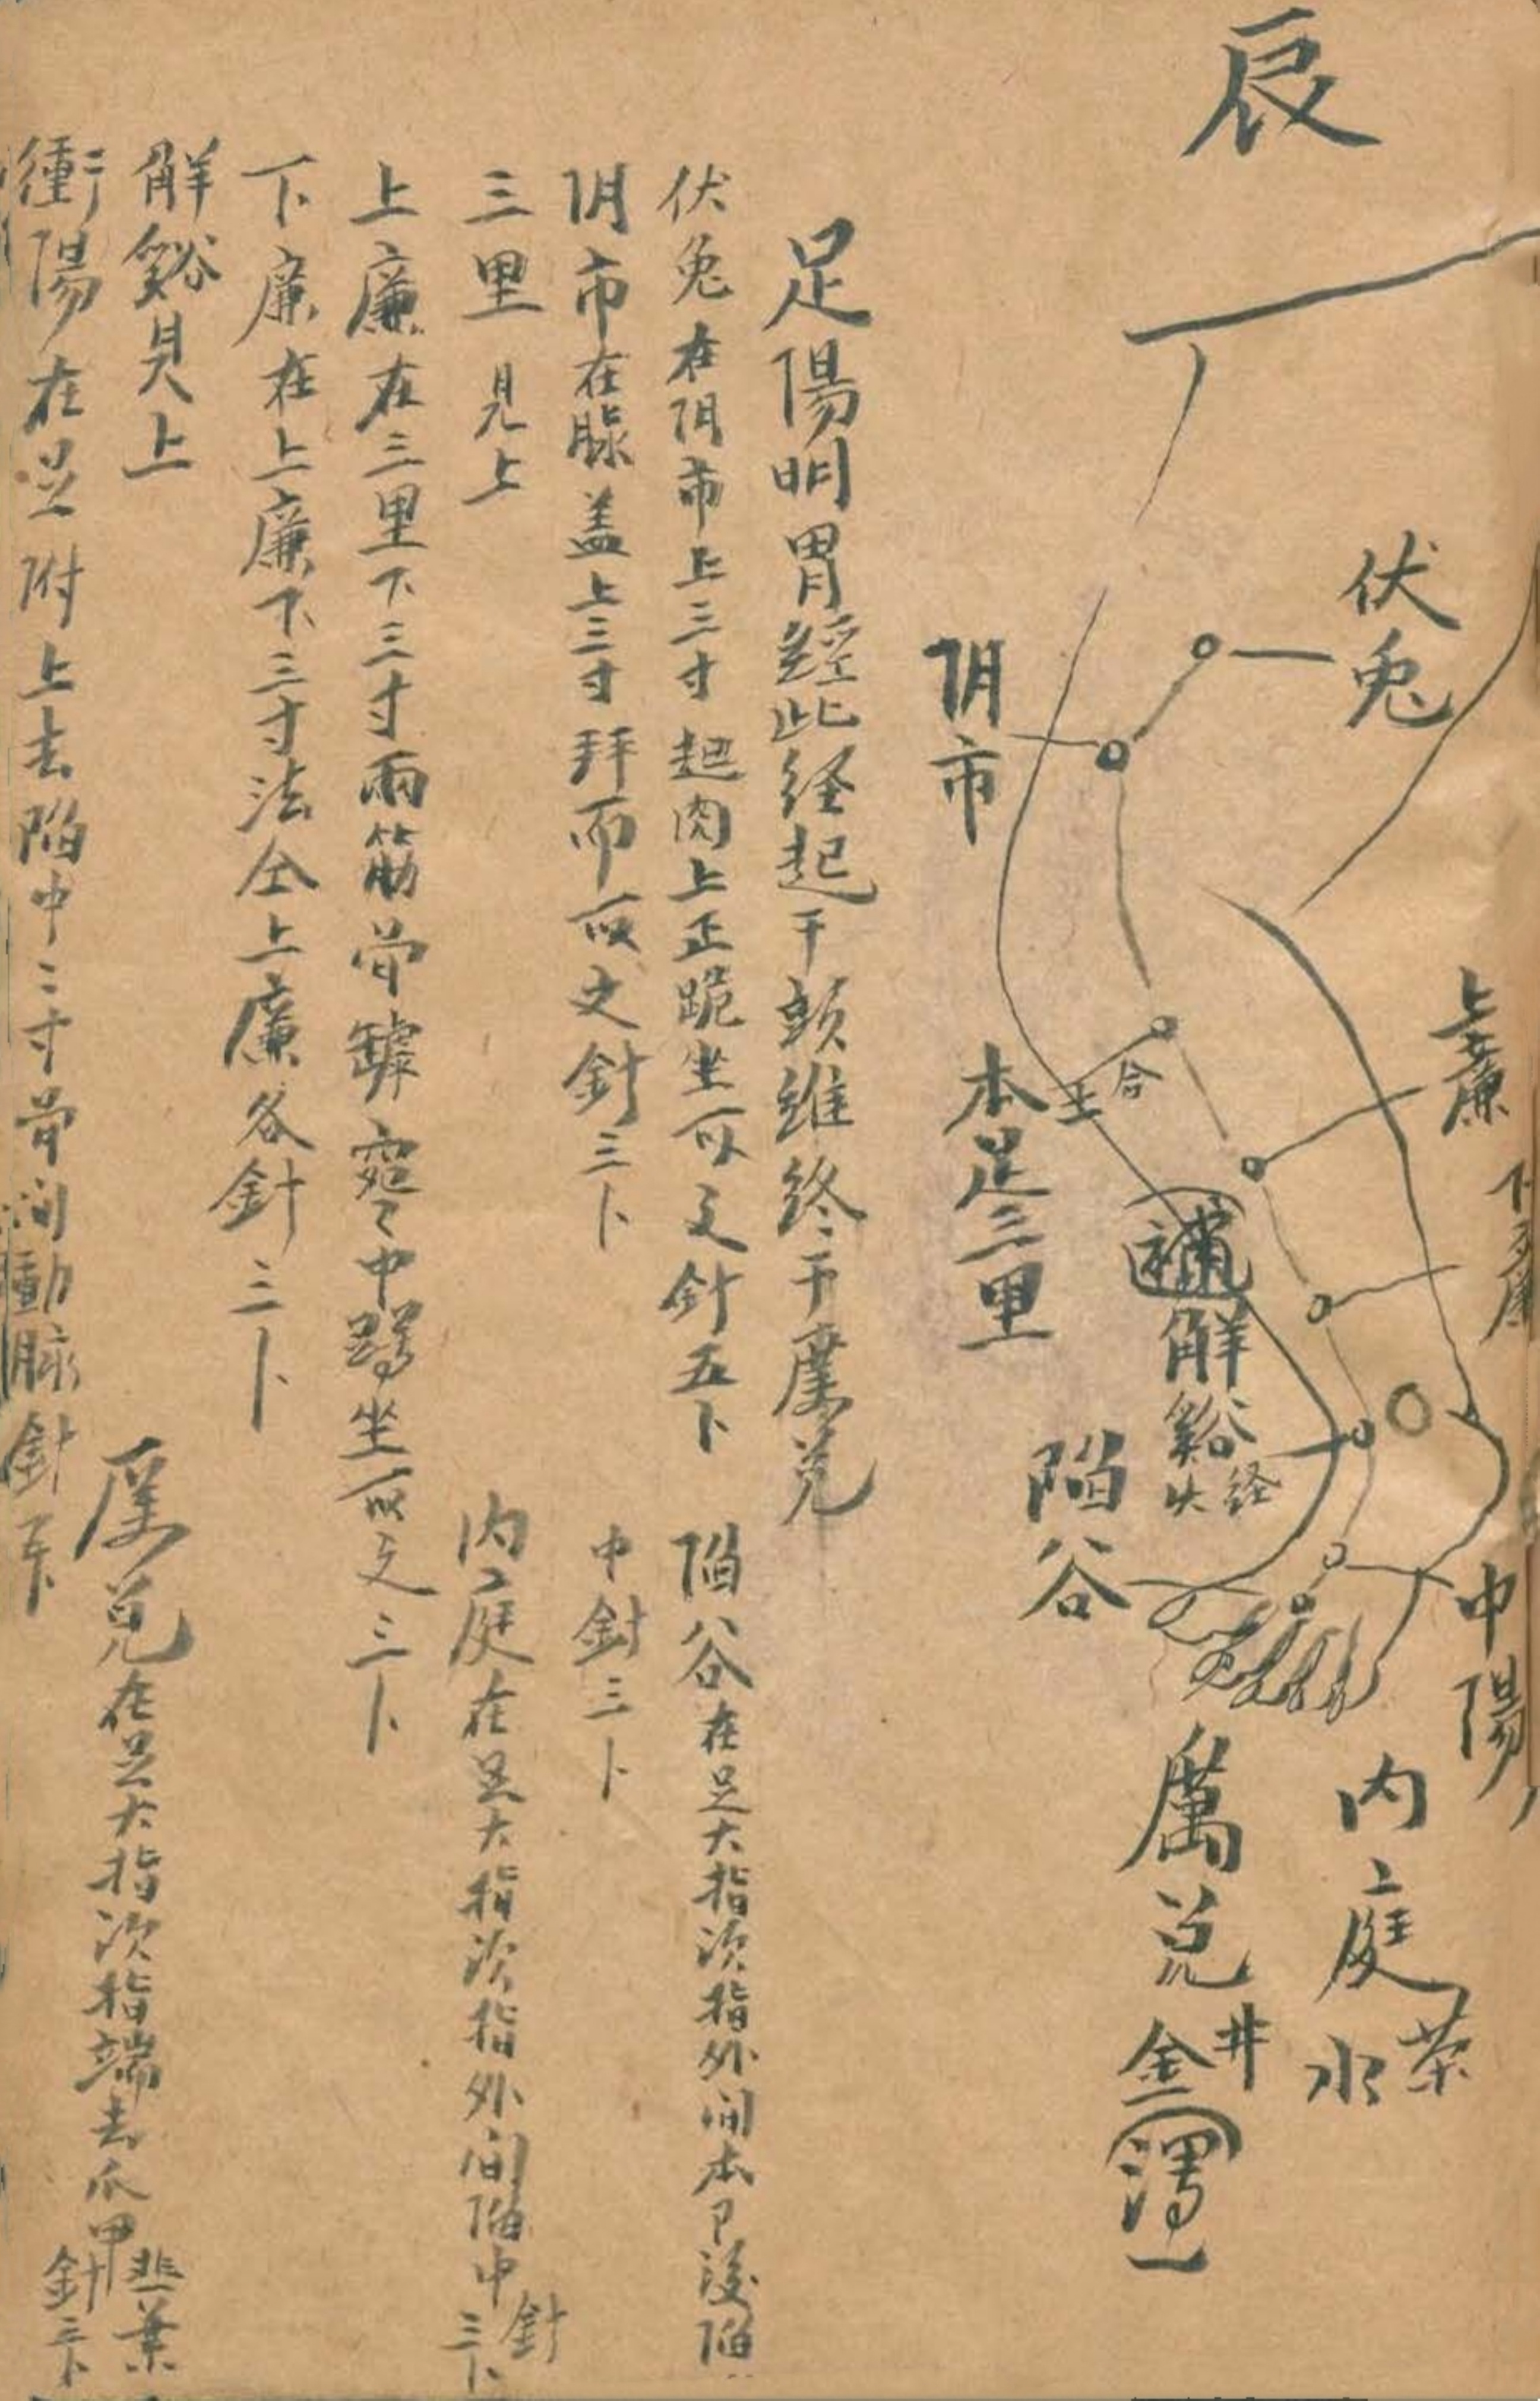 辰
伏兔
阴市
上廉
下廉
本足三里
土合
補
解谿
火经
陷谷
中陽
内庭
水
厲兑
金井
瀉
足陽明胃經此经起于頭維终于厲兑
伏兔在阴市上三寸起肉上正跪坐可又針五卜
阴市在膝盖上三寸拜而取之針三卜
三里見上
上廉在三里下三寸兩筋骨罅宛中蹲坐取之三卜
下廉在上廉下三寸法仝上廉各針三卜
解谿見上
衝陽在足附上去陷中二寸骨间動脉針三卜
陷谷在足大指次指外间本卩後陷
中針三卜
内庭在足大指次指外间陷中針三卜
厉兑在足大指次指端去爪甲韭葉
針三卜